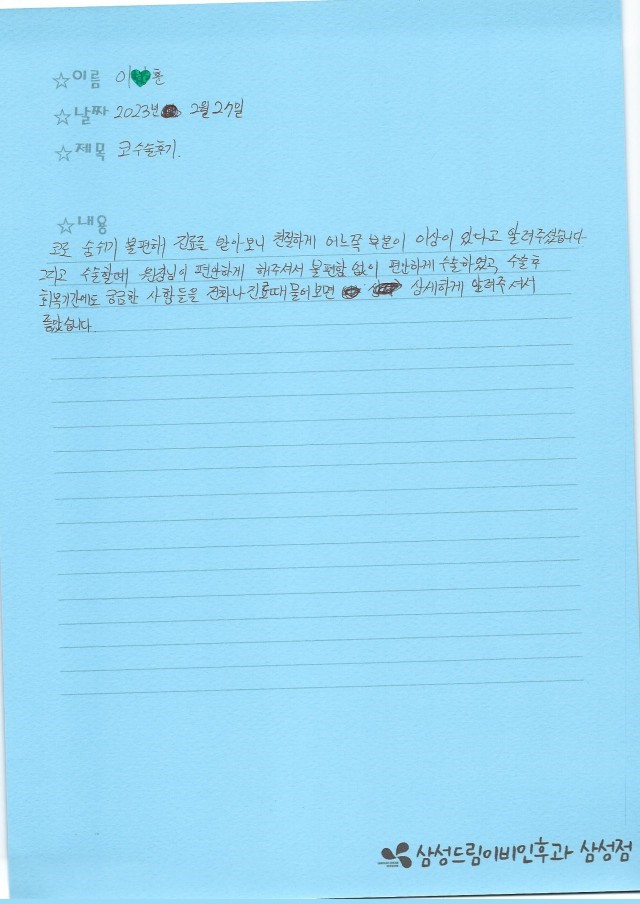 ☆이름 이💚훈
☆날짜 2023년 2월 27일
☆제목 코수술후기.
☆내용
코로 숨쉬기 불편해 진료를 받아보니 친절하게 어느쪽 부분이 이상이 있다고 알려주셨습니다
그리고 수술할때 원장님이 편안하게 해주셔서 불편함 없이 편안하게 수술하였고, 수술후
회복기간에도 궁금한 사항들을 전화나 진료때 물어보면 상세하게 알려주셔서
좋았습니다.
삼성드림이비인후과 삼성점